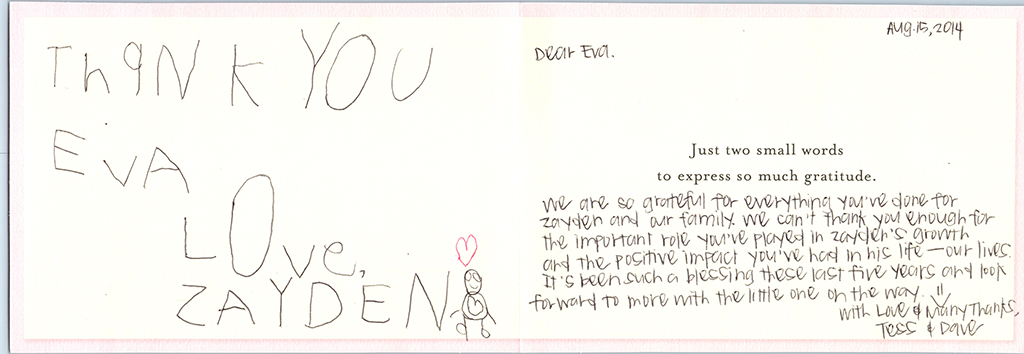 Thank You
Eva
Love,
ZAYDEN
Aug. 15, 2014
Dear Eva.
Just two small words
to express so much gratitude.
We are so grateful for everything you've done for
Zayden and our family. We can't thank you enough for
the important role you've played in Zayden's growth
and the positive impact you've had in his life — our lives.
It's been such a blessing these last five years and look
forward to more with the little one on the way. =)
With Love & Many Thanks,
Tess & Dave